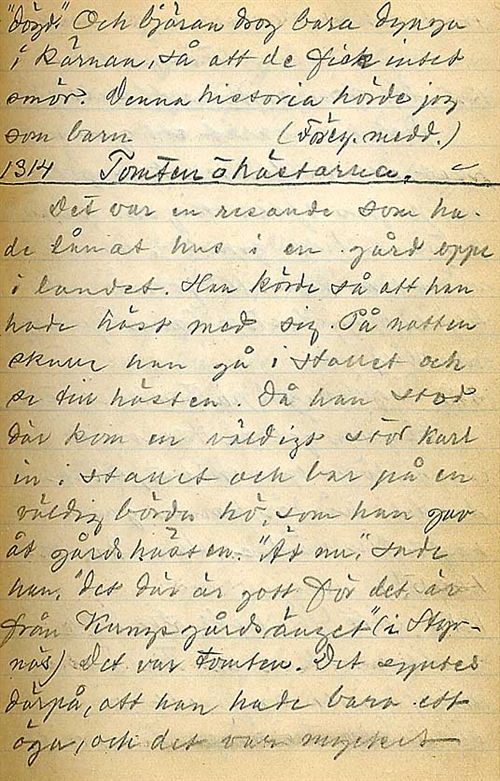 "dögd." Och bjäran drog bara dynga
i kärnan, så att de fick intet
smör. Denna historia hörde jag
som barn (Förey. medd.)
1314 Tomten o hästarna.
Det var en resande som ha-
de lånat hus i en gård oppe
i landet. Han körde så att han
hade häst med sig. På natten
skulle han gå i stallet och
se till hästen. Då han stod
där kom en väldigt stor karl
in i stallet och bar på en
väldig börda hö, som han gav
åt gårdshästen. "Ät nu," sade
han, "det där är gott för det är
från Kungsgårdsänget" (i Styr-
näs) Det var tomten. Det syntes
därpå, att han hade bara ett
öga, och det var mycket